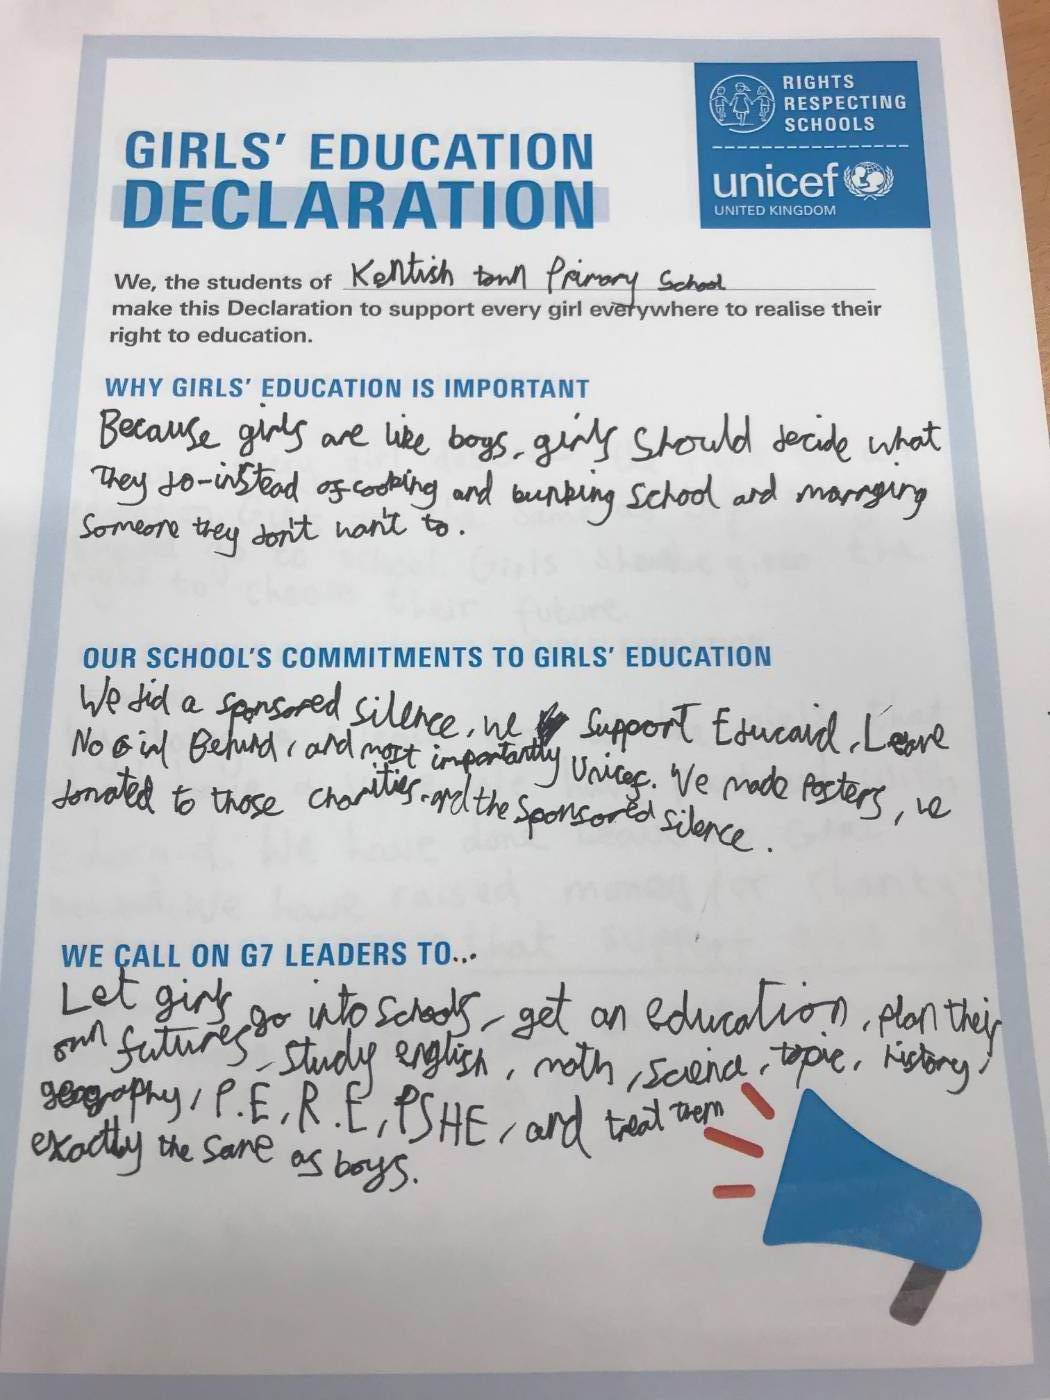 RIGHTS
RESPECTING
SCHOOLS
unicef
UNITED KINGDOM
GIRLS' EDUCATION
DECLARATION
We, the students of Kentish town Primary School
make this Declaration to support every girl everywhere to realise their
right to education.
WHY GIRLS' EDUCATION IS IMPORTANT
Because girls are like boys, girls should decide what
They do-instead of cooking and bunking School and marrying
Someone they don't want to.
OUR SCHOOL'S COMMITMENTS TO GIRLS' EDUCATION
We did a sponsored silence, we Support Educaid, Leave
No Girl Behind, and most importantly Unicef. We made Posters, we
donated to those charities, and the Sponsored Silence.
WE CALL ON G7 LEADERS TO...
Let girls go into Schools, get an education, plan their
own futures, study english, math, science, topic, history,
geography, P.E, R.E, PSHE, and treat them
exactly the same as boys.